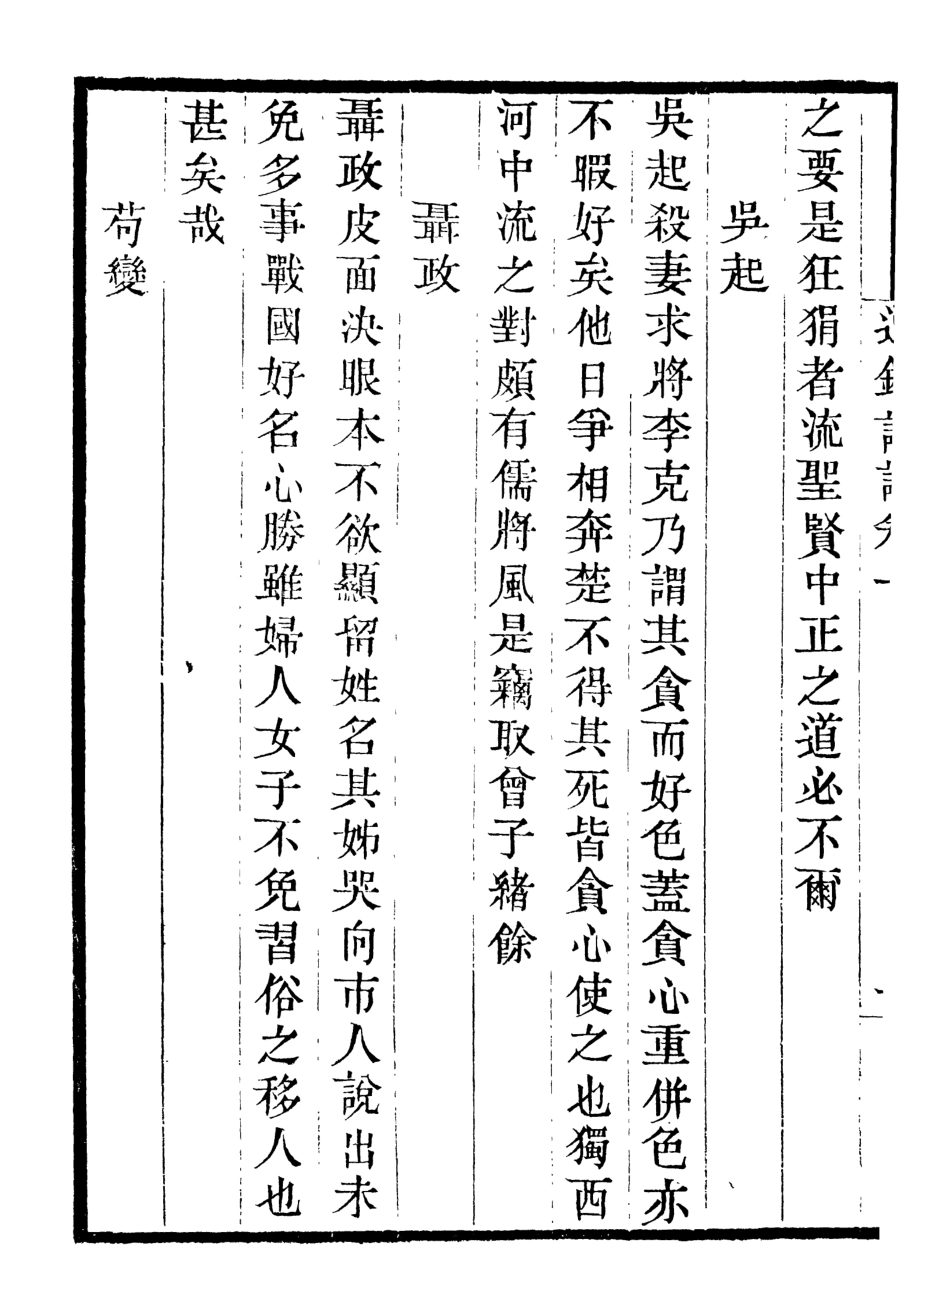 之要是狂狷者流聖賢中正之道必不爾
吳起
吳起殺妻求將李克乃謂其貪而好色蓋貪心重併色亦
不暇好矣他日爭相奔楚不得其死皆貪心使之也獨西
河中流之對頗有儒將風是竊取曾子緒餘
聶政
聶政皮面決眼本不欲顯留姓名其姊哭向市人說出未
免多事戰國好名心勝雖婦人女子不免習俗之移人也
甚矣哉
茍變